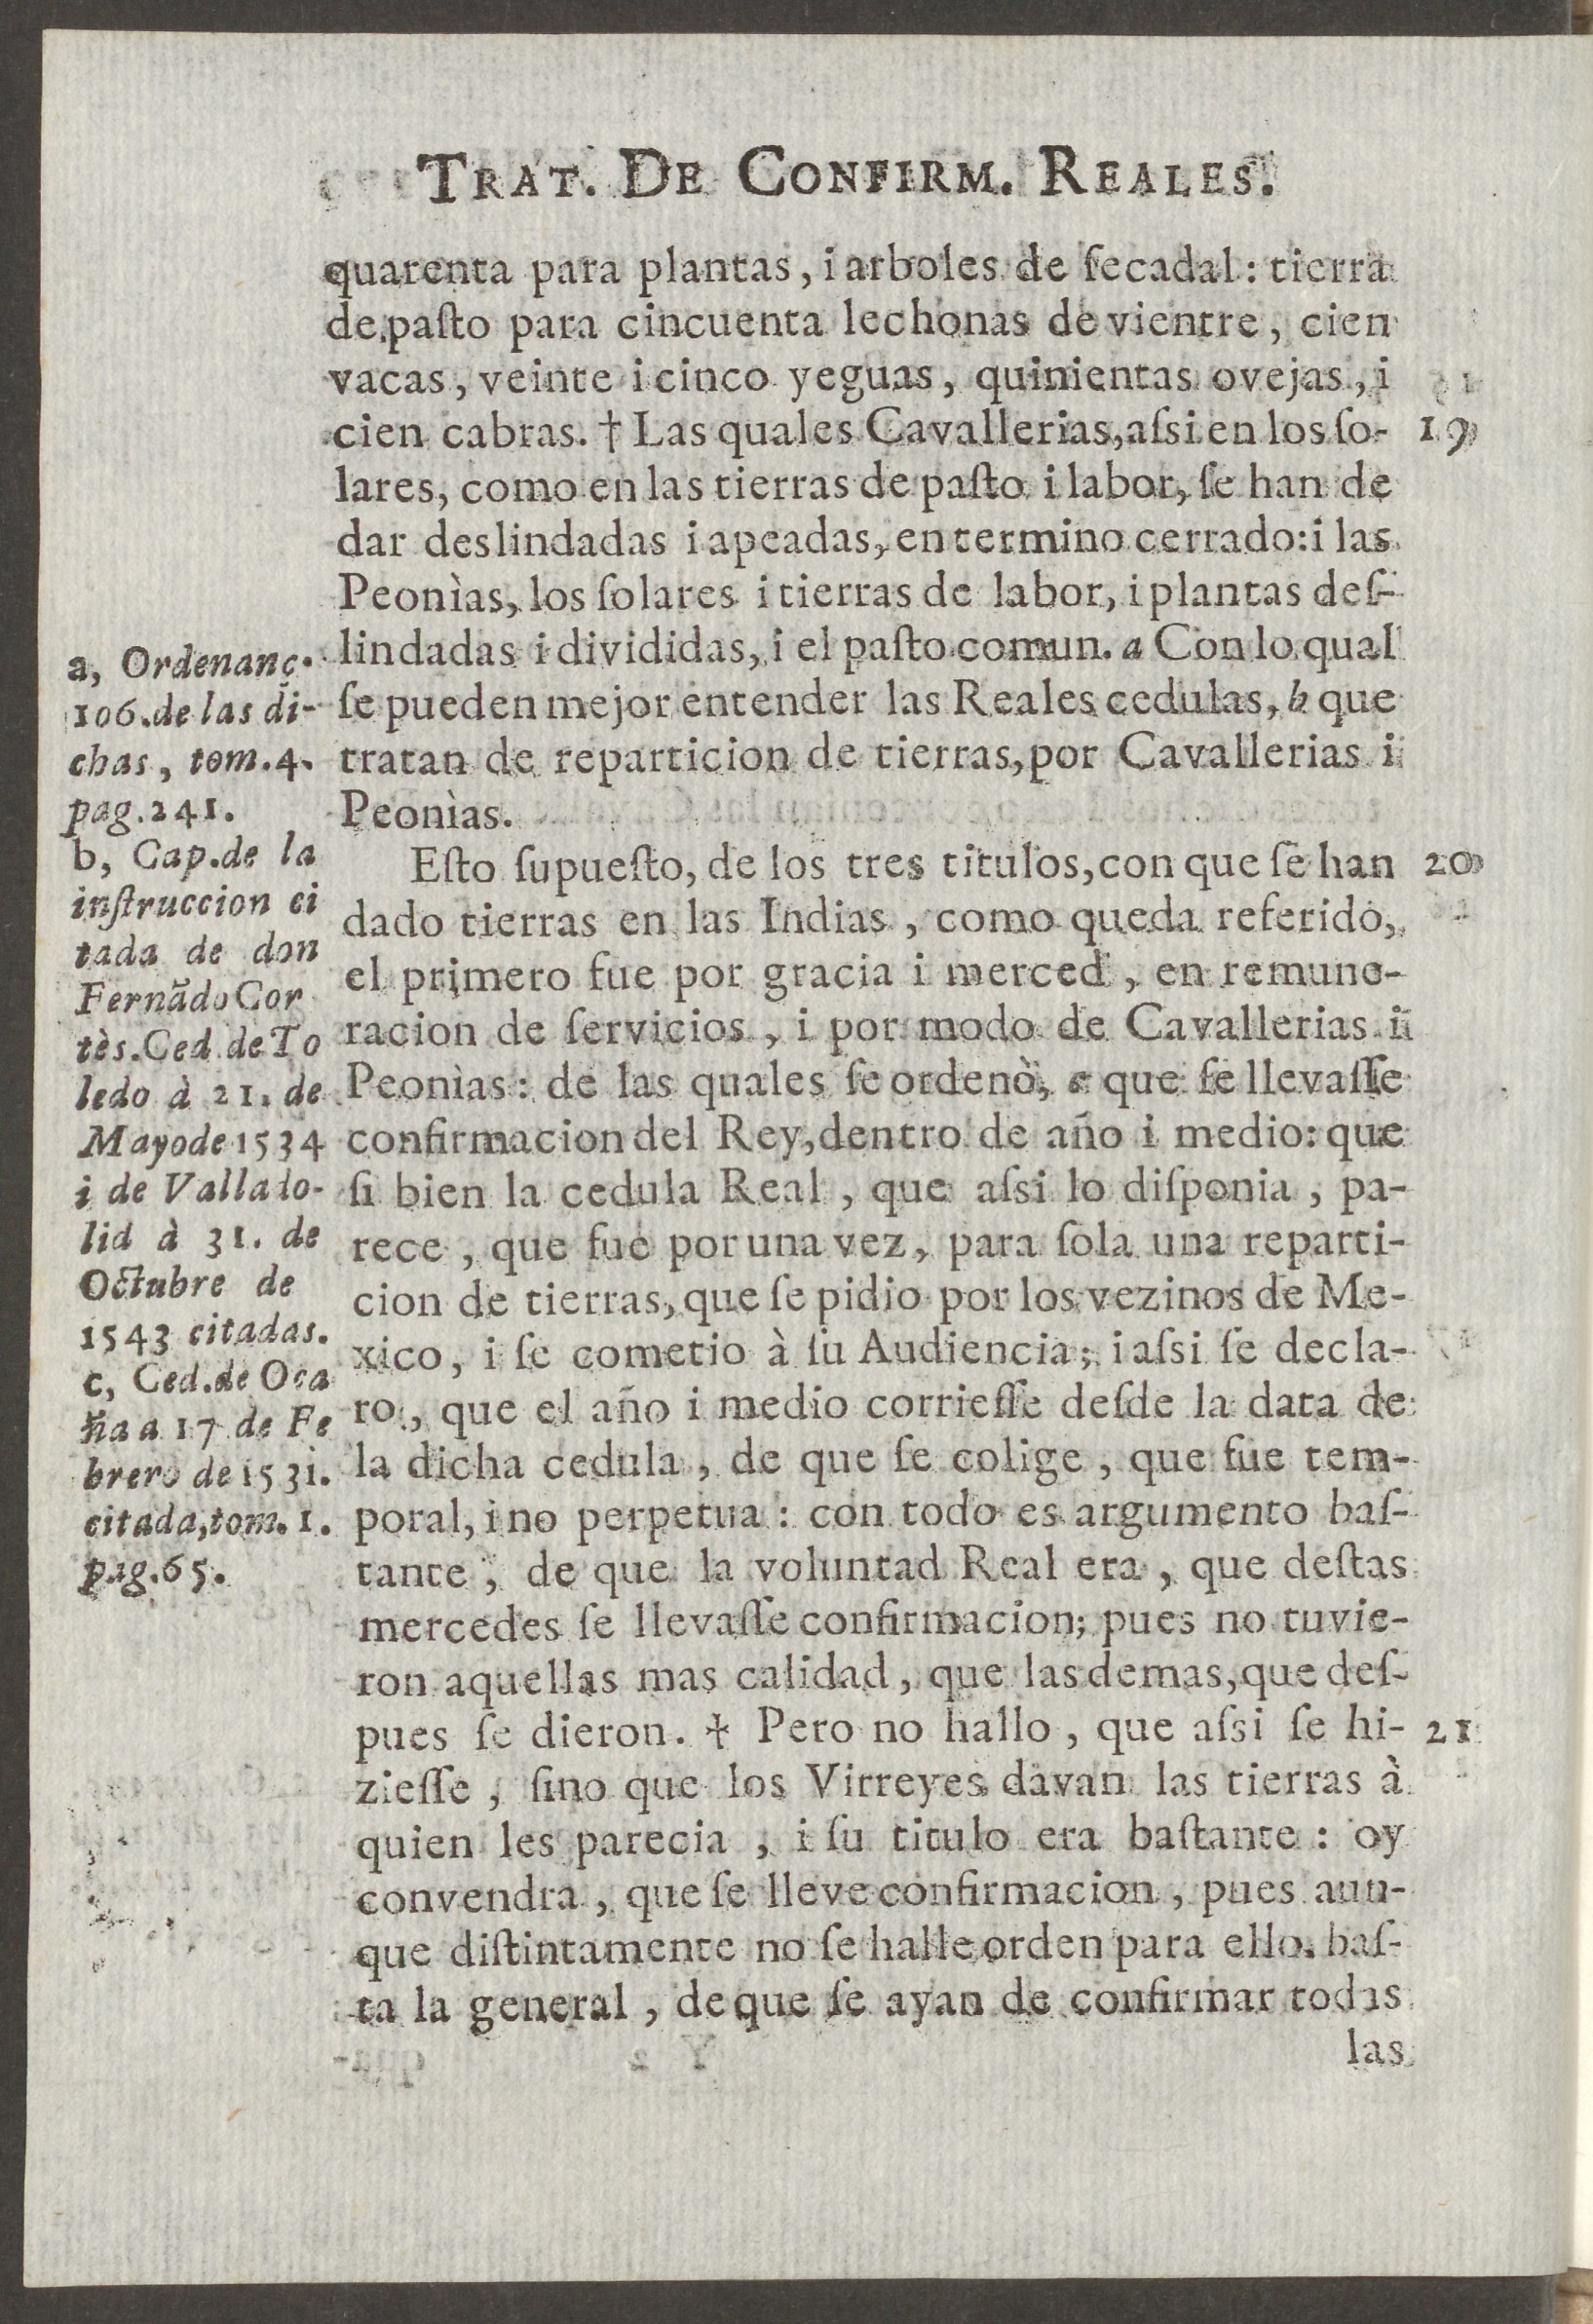 TRAT. DE CONFIRM. REALES.
quarenta para plantas, i arboles de ſecadal: tierra
de paſto para cincuenta lechonas de vientre, cien
vacas, veinte i cinco yeguas, quinientas ovejas, i
cien cabras. † Las quales Cavallerias, aſsi en los ſo-
19
lares, como en las tierras de paſto i labor, ſe han de
dar deslindadas i apeadas, en termino cerrado: i las
Peonìas, los ſolares i tierras de labor, i plantas deſ-
lindadas i divididas, i el paſto comun. a Con lo qual
ſe pueden mejor entender las Reales cedulas, b que
tratan de reparticion de tierras, por Cavallerias i
Peonìas.
Eſto ſupueſto, de los tres titulos, con que ſe han
20
dado tierras en las Indias, como queda referido,
el primero fue por gracia i merced, en remune-
racion de ſervicios, i por modo de Cavallerias i
Peonìas: de las quales ſe ordenò, c que ſe llevaſſe
confirmacion del Rey, dentro de año i medio: que
ſi bien la cedula Real, que aſsi lo diſponia, pa-
rece, que fue por una vez, para ſola una reparti-
cion de tierras, que ſe pidio por los vezinos de Me-
xico, i ſe cometio à ſu Audiencia; i aſsi ſe decla-
ro, que el año i medio corrieſſe deſde la data de
la dicha cedula, de que ſe colige, que fue tem-
poral, i no perpetua: con todo es argumento baſ-
tante, de que la voluntad Real era, que deſtas
mercedes ſe llevaſſe confirmacion; pues no tuvie-
ron aquellas mas calidad, que las demas, que deſ-
pues ſe dieron. † Pero no hallo, que aſsi ſe hi-
21
zieſſe, ſino que los Virreyes davan las tierras à
quien les parecia, i ſu titulo era baſtante: oy
convendra, que ſe lleve confirmacion, pues aun-
que diſtintamente no ſe halle orden para ello, baſ-
ta la general, de que ſe ayan de confirmar todas
las
a, Ordenanç.
106. de las di-
chas, tom. 4.
pag. 241.
b, Cap. de la
inſtruccion ci
tada de don
Fernãdo Cor
tès. Ced. de To
ledo à 21. de
Mayo de 1534
i de Vallado-
lid à 31. de
Octubre de
1543 citadas.
c, Ced. de Oca
ña a 17 de Fe
brero de 1531.
citada, tom. 1.
pag. 65.